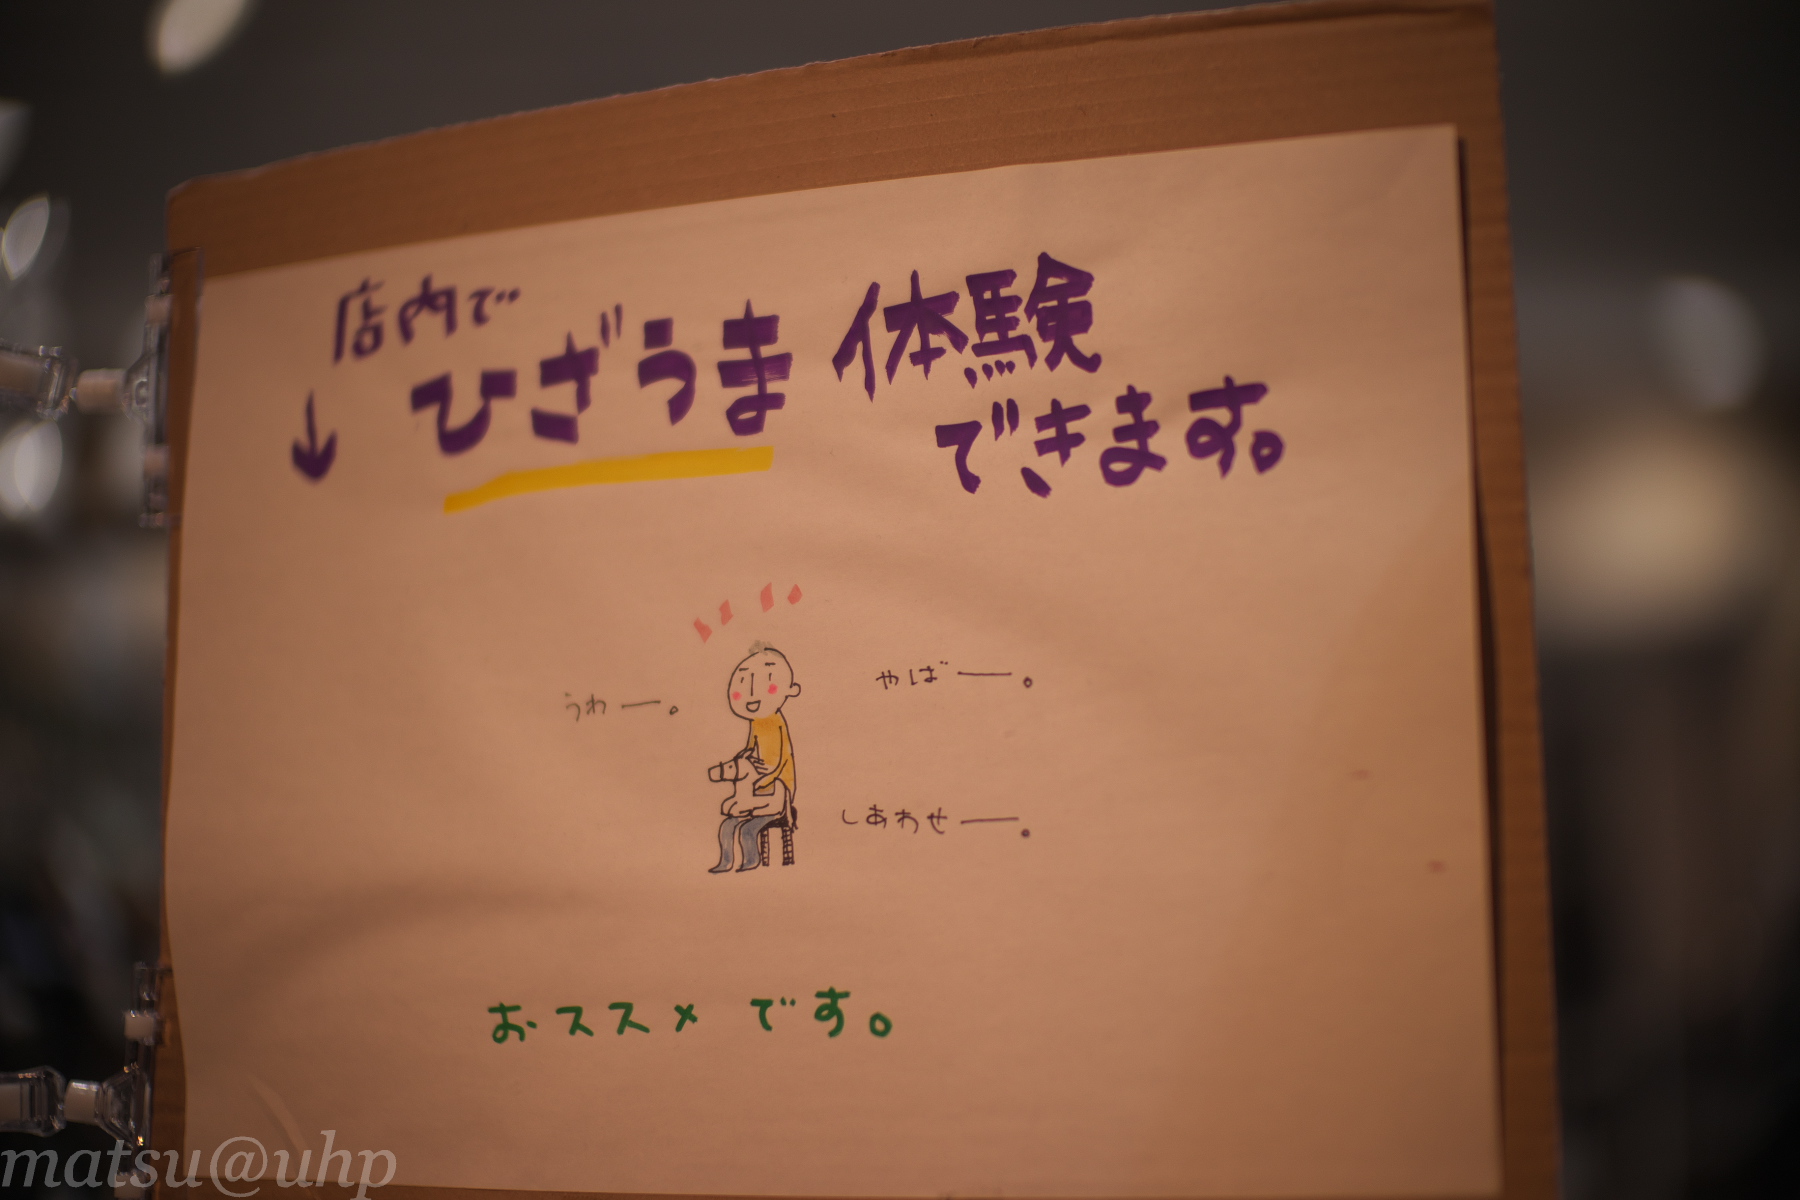 店内で
↓ ひざうま 体験
できます。
うわー。
やばー。
しあわせー。
おススメです。
matsu@uhp